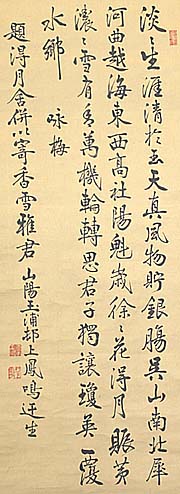 淡之生涯清於玉天真風物貯銀腸吳山南北犀
河曲越海東西高社陽魁嵗徐〻花得月賑茅
濃〻雪有香萬機輪轉思君子獨讓瓊英一覆
水鄉
詠梅
題得月舍併以寄香雪雅君
山陽玉浦邨上鳳鳴迂生